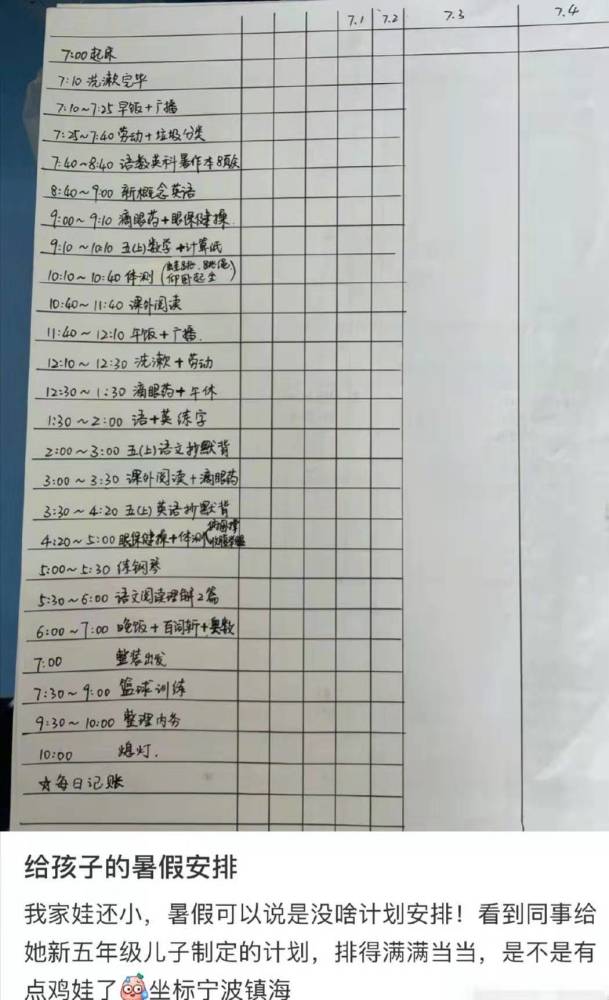 7.1 7.2 7.3 7.4
7:00 起床
7:10 洗漱完毕
7:10~7:25 早饭+广播
7:25~7:40 劳动+垃圾分类
7:40~8:40 语数英科暑作本8页
8:40~9:00 新概念英语
9:00~9:10 滴眼药+眼保健操
9:10~10:10 五(上)数学+计算纸
10:10~10:40 体测(跳绳 仰卧起坐)
10:40~11:40 课外阅读
11:40~12:10 午饭+广播.
12:10~12:30 洗漱+劳动
12:30~1:30 滴眼药+午休
1:30~2:00 语+英练字
2:00~3:00 五(上)语文抄默背
3:00~3:30 课外阅读+滴眼药
3:30~4:20 五(上)英语抄默背
4:20~5:00 眼保健操+体测
5:00~5:30 练钢琴
5:30~6:00 语文阅读理解2篇
6:00~7:00 晚饭+百词斩+奥数
7:00 整装出发
7:30~9:00 篮球训练
9:30~10:00 整理内务
10:00 熄灯.
☆每日记账
给孩子的暑假安排
我家娃还小，暑假可以说是没啥计划安排！看到同事给
她新五年级儿子制定的计划，排得满满当当，是不是有
点鸡娃了坐标宁波镇海